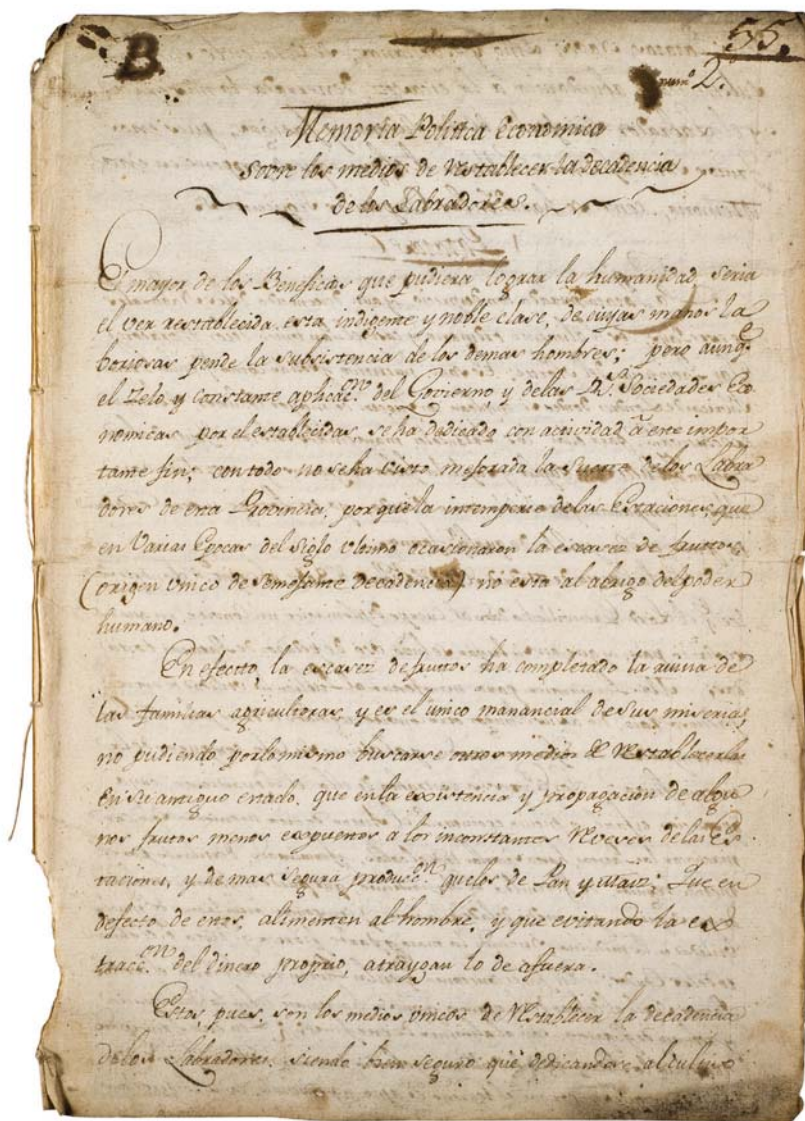 B
55.
num.º 2.º
Memoria Politica Economica
sobre los medios de restablecer la decadencia
de los Labradores.
El mayor de los Beneficios que pudiera lograr la humanidad, seria
el ver restablecida esta indigente y noble clase, de cuyas manos la
boriosas pende la subsistencia de los demas hombres; pero aunq.e
el Zelo, y constante aplicac.on del Govierno, y delas R.s Sociedades Eco
nomicas por el establecidas, se ha dedicado con actividad â este impor
tante fin; con todo no seha visto mejorada la Suerte delos Labra
dores de esta Provincia, porque la intemperie delas Estaciones, que
en Varias Epocas del Siglo ultimo ocasionaron la escasez de fruttos,
(origen Unico de Semejante decadencia) no esta al abrigo del poder
humano.
En efectto, la escasez de fruttos ha completado la ruina de
las familias agricultoras, y es el unico manancial de sus miserias;
no pudiendo porlomismo buscarse otros medios de restablecerlas
en su antiguo estado, que enla existencia y propagacion de algu
nos frutos menos expuestos a los inconstantes reveses delas Es
taciones, y de mas segura producc.on quelos de Pan y Maiz; Que en
defecto de estos, alimenten al hombre, y que evitando la ex
tracc.on del dinero proprio, atraygan lo de afuera.
Estos, pues, son los medios unicos de restablecer la decadencia
delos Labradores, siendo bien seguro que dedicandose al culivo